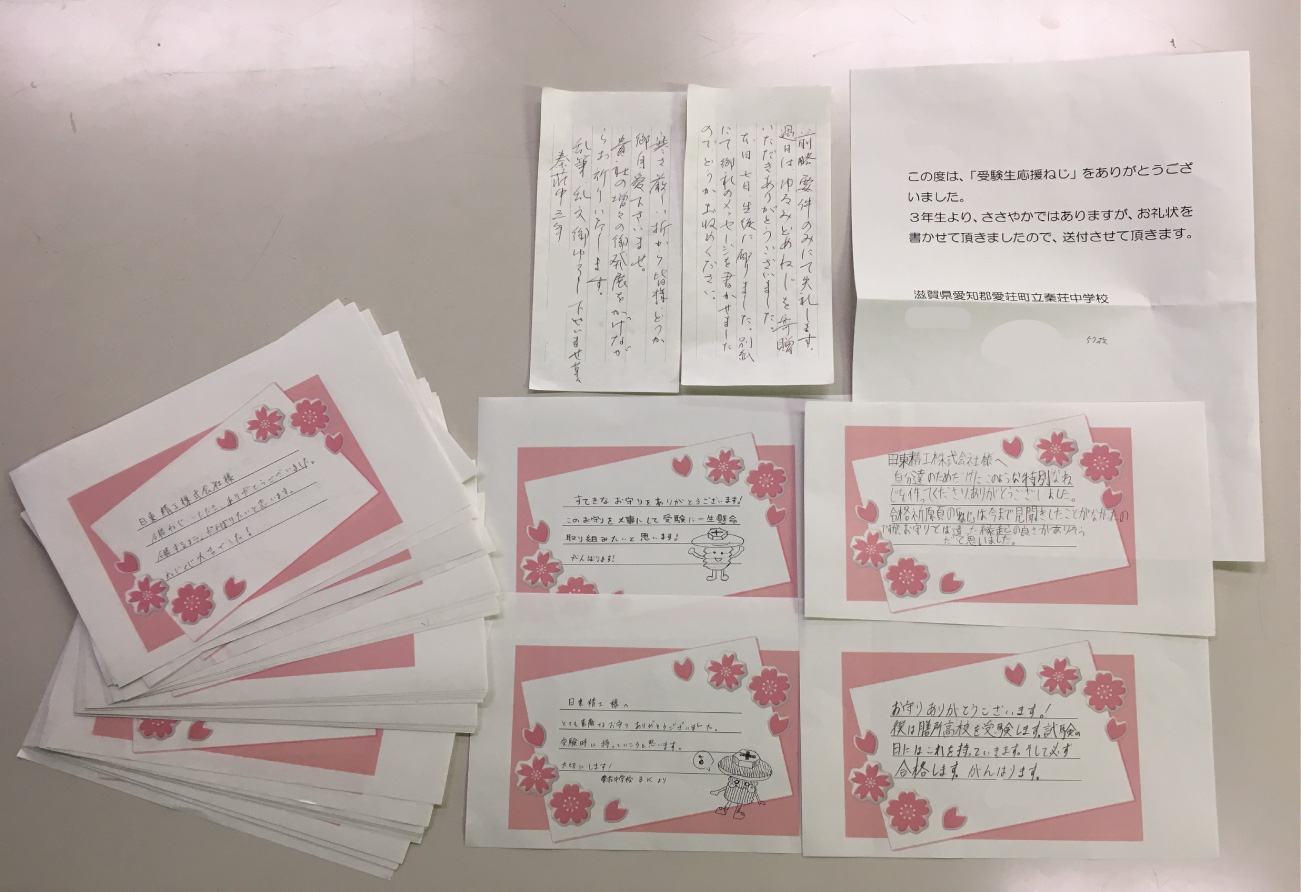 前略 要件のみにて失礼します。
過日は ゆるみどめねじを寄贈
いただきありがとうございました。
本日七日 生徒に配りました。別紙
にて御礼のメッセージを書かせました
のでどうかお収めください。
寒さ厳しい折から皆様どうか
御自愛下さいませ。
貴社の増々の御発展をかげなが
らお祈りいたします。
乱筆乱文御ゆるし下さいませ
秦荘中三年
この度は、「受験生応援ねじ」をありがとうござ
いました。
3年生より、ささやかではありますが、お礼状を
書かせて頂きましたので、送付させて頂きます。
滋賀県愛知郡愛荘町立秦荘中学校
日東精工株式会社様
ありがとうございました。
がんばりたいと思います。
すてきなお守りをありがとうございます!
このお守りを大事にして受験に一生懸命
取り組みたいと思います!
がんばります!
日東精工株式会社様へ
自分達のためだけに、このような特別なね
じを作ってくださりありがとうございました。
合格祈願のねじは今まで見聞きしたことがなかったの
だと思いました。
日東精工様へ
とても素敵なお守りありがとうございました。
受験時に持っていこうと思います。
大切にします!
秦荘中学校 B K より
お守りありがとうございます。!
僕は膳所高校を受験します。試験の
日にはこれを持っていきます。そして必ず
合格します。がんばります。